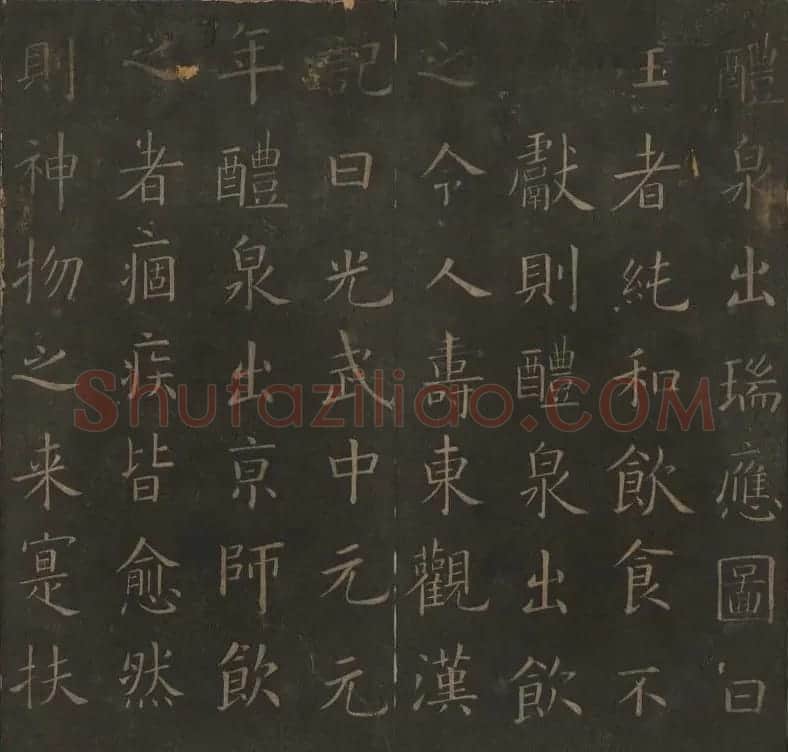 醴泉出瑞應圖曰
王者純和飲食不
獻則醴泉出飲
之令人壽東觀漢
記曰光武中元元
年醴泉出京師飲
之者痼疾皆愈然
則神物之来寔扶
Shufaziliao.COM